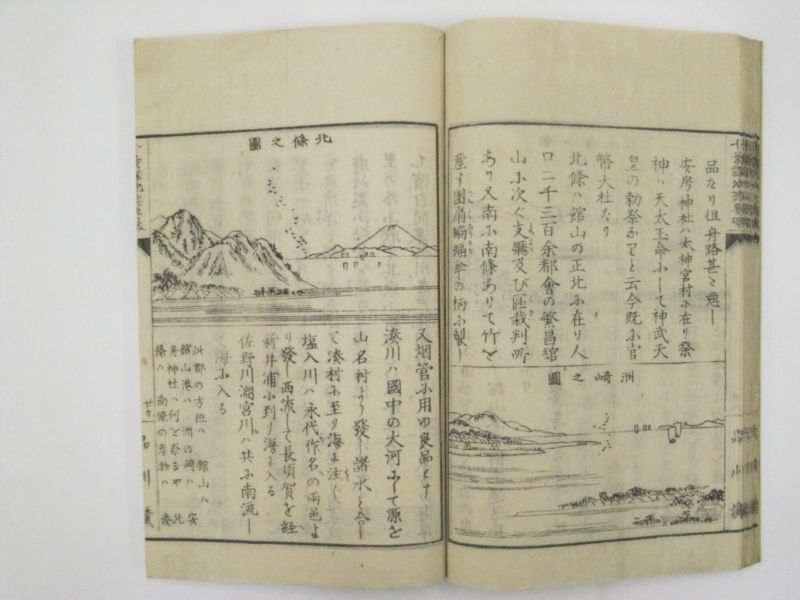 品なり但舟路甚ゞ悪し
安房神社ハ太神宮村ふ在り祭
神ハ天太玉命ふして神武天
皇の勅祭ありと云今既ふ官
幣大社なり
北條ハ館山の正北ふ在り人
口二千三百余都會の繁昌舘
山ふ次ぐ支廳及び區裁判所
あり又南ふ南條ありて竹を
産す團扇蝙蝠傘の柄ふ製し
洲﨑之圖
北條之圖
又烟管ふ用ゆ良品とす
湊川ハ國中の大河ふして源を
山名村より發し諸水と合し
て湊村ふ至り海ふ注ぐ
塩入川ハ永代作名の両邑よ
り發し西流して長須賀を経
新井浦ふ到り海ふ入る
佐野川瀬宮川ハ共ふ南流し
て海ふ入る
此郡の方位ハ 舘山ハ
舘山港ハ 洲の﨑ハ 安
房神社ハ何を祭るや 北
條ハ 南條の産物ハ 湊